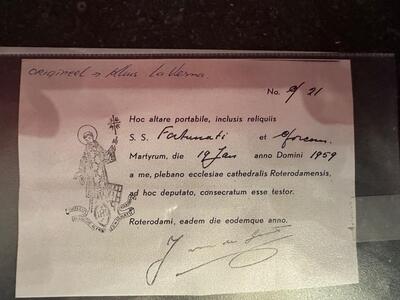 origineel → Klaus La Verna
No. 9/21
Hoc altare portabile, inclusis reliquiis
S. S. Fortunati et
Martyrum, die 19 Jan anno Domini 1959
a me, plebano ecclesiae cathedralis Roterodamensis,
ad hoc deputato, consecratum esse testor.
Roterodami, eadem die eodemque anno.